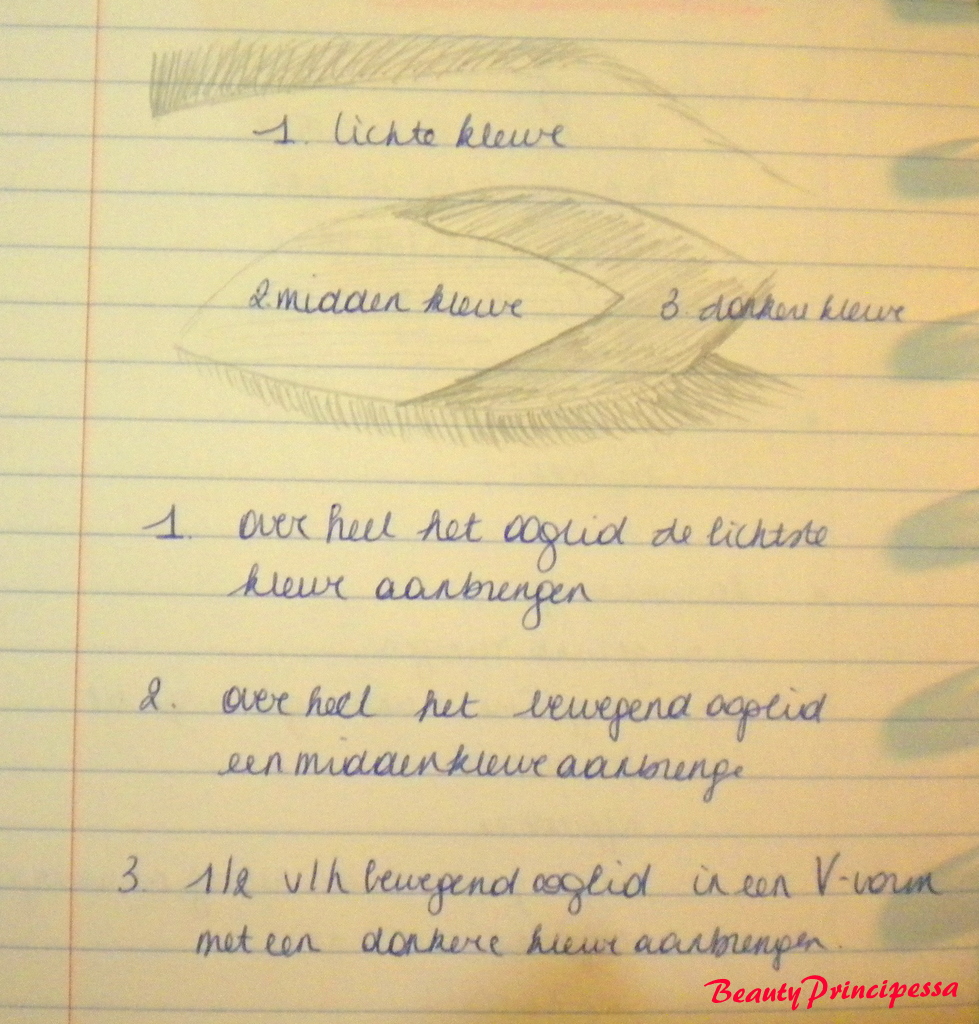 1. lichte kleur
2 midden kleur
3. donkere kleur
1. over heel het ooglid de lichtste
kleur aanbrengen
2. over heel het bewegend ooglid
een middenkleur aanbrenge
3. 1/2 v/h bewegend ooglid in een V-vorm
met een donkere kleur aanbrengen.
BeautyPrincipessa